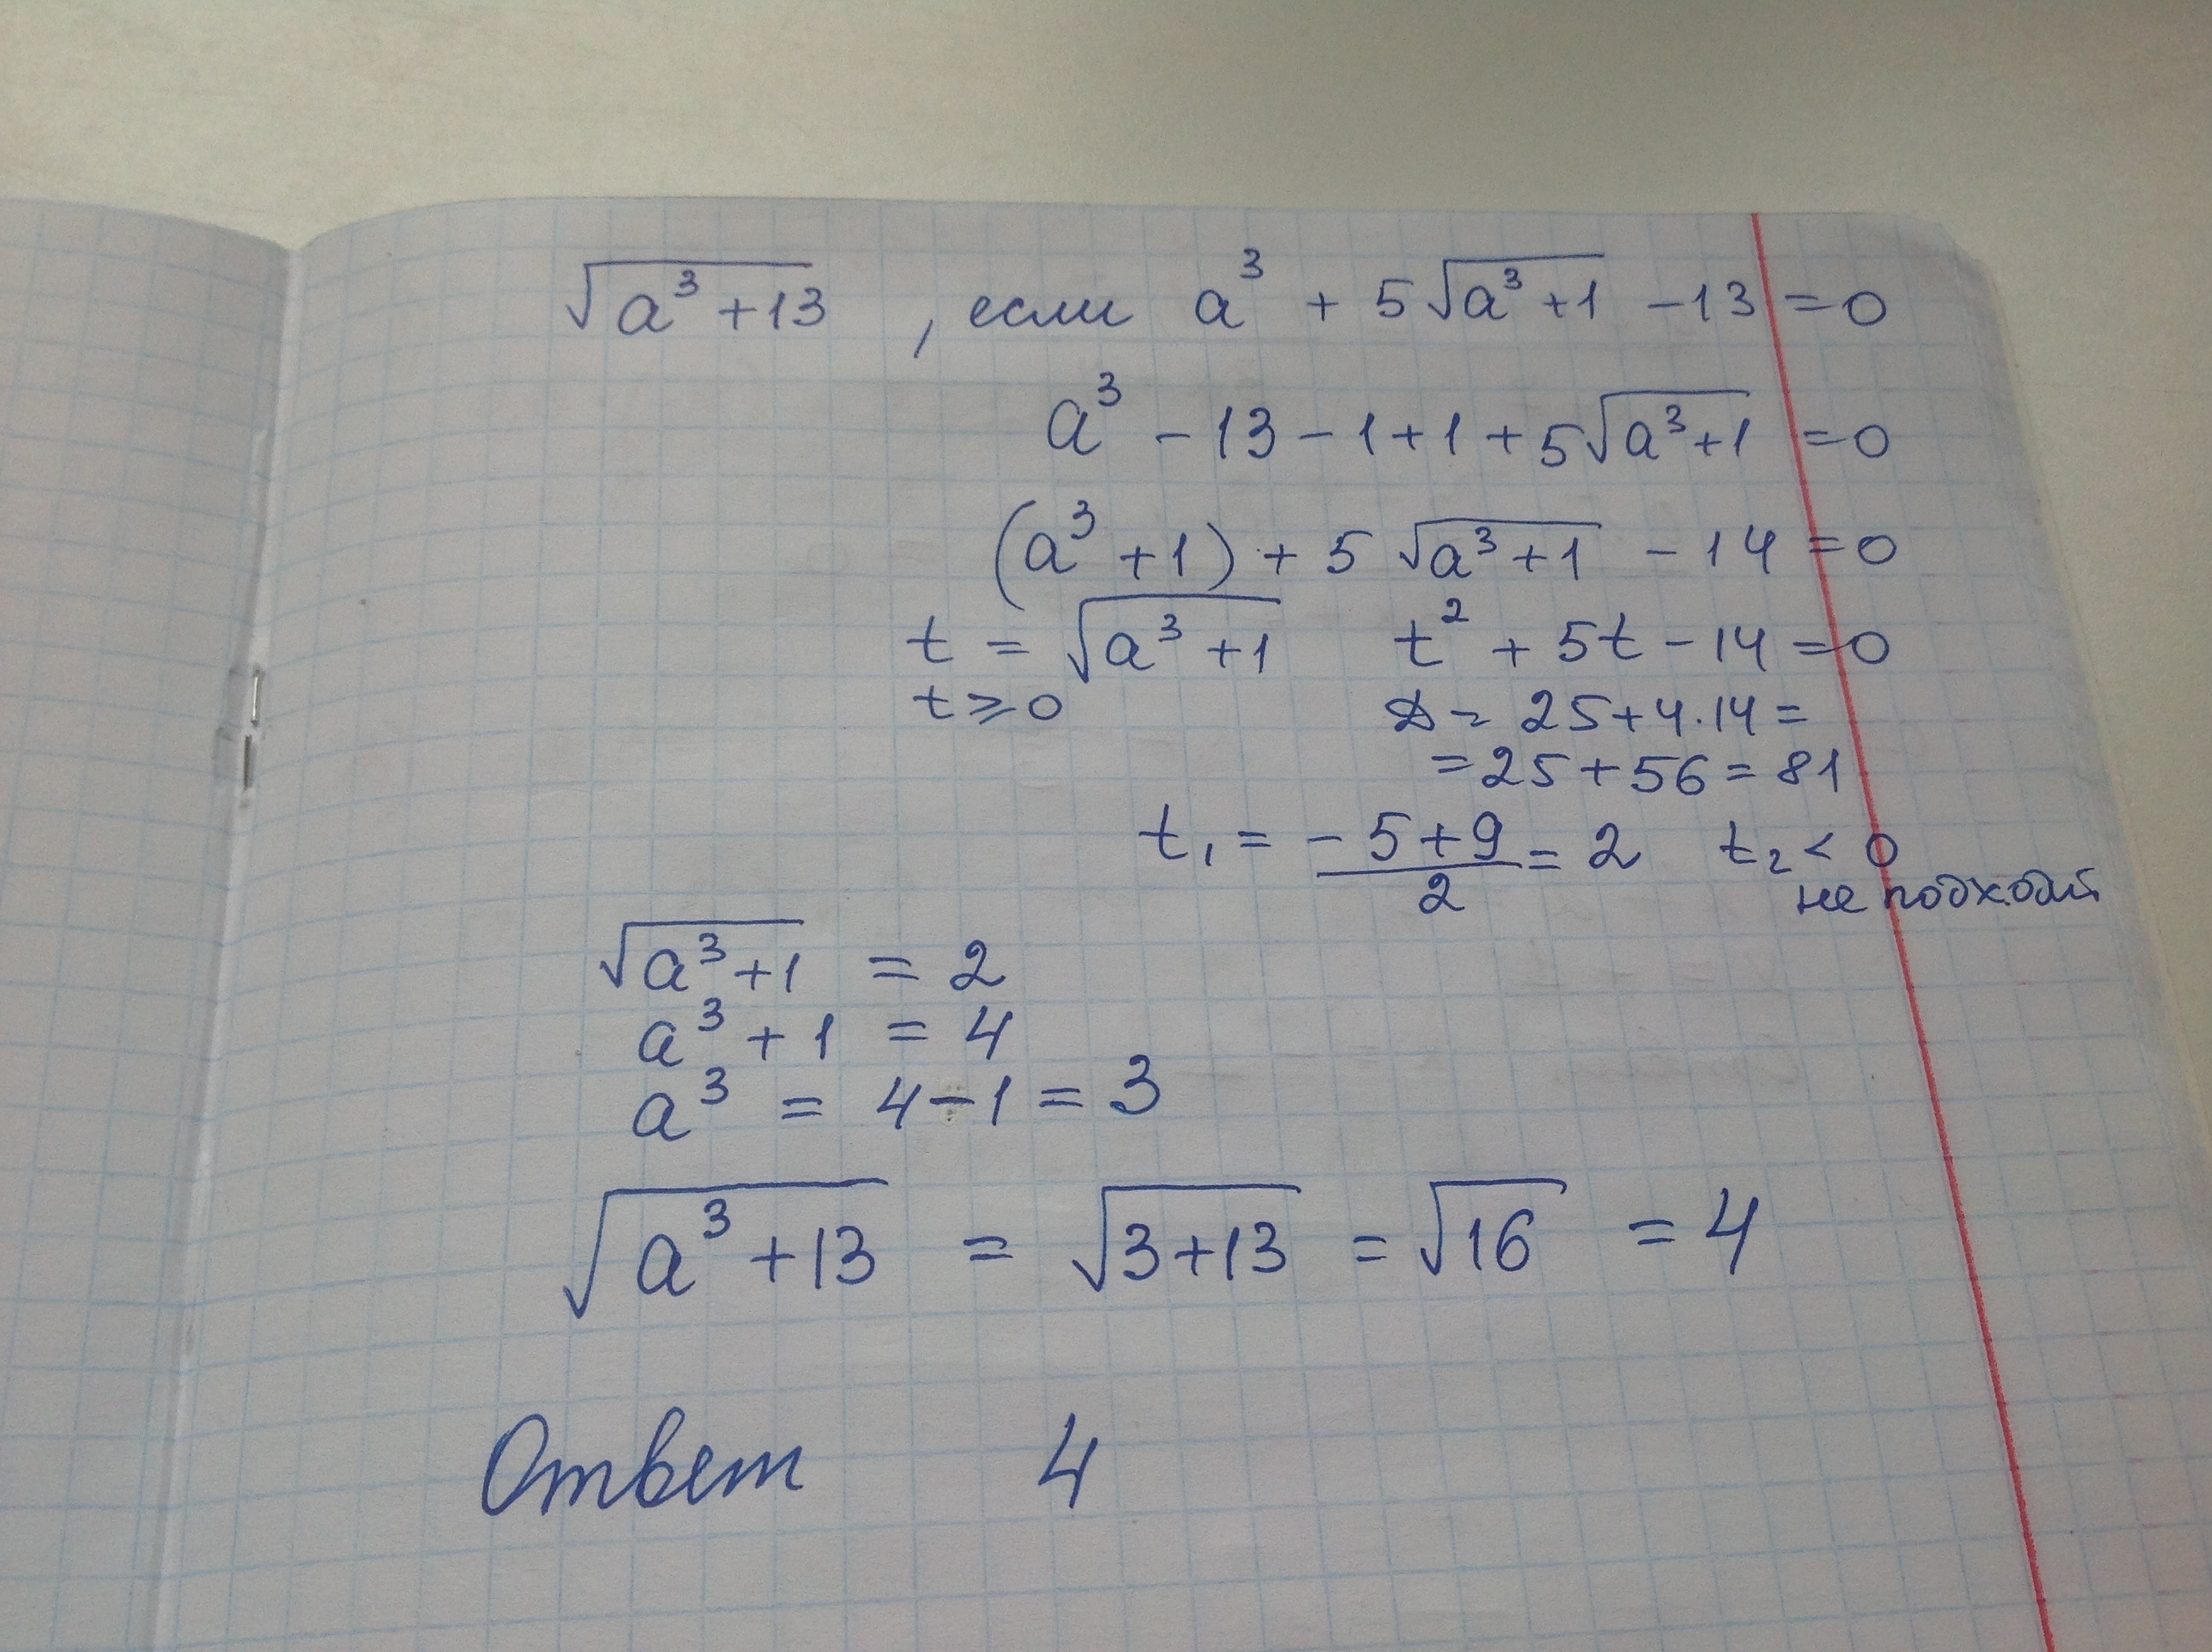 √(a³+13) , если a³ + 5√(a³+1) - 13 = 0
a³ - 13 - 1 + 1 + 5√(a³+1) = 0
(a³ + 1) + 5√(a³+1) - 14 = 0
t = √(a³+1) t² + 5t - 14 = 0
t ⩾ 0 D = 25 + 4·14 =
= 25 + 56 = 81
t₁ = (-5+9)/2 = 2 t₂ < 0
не подходит
√(a³+1) = 2
a³ + 1 = 4
a³ = 4 - 1 = 3
√(a³+13) = √(3+13) = √16 = 4
Ответ 4